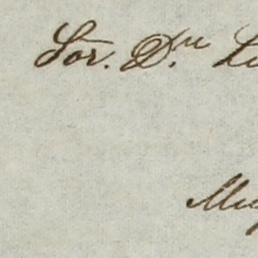 Sor. Dn. Lu
Muy